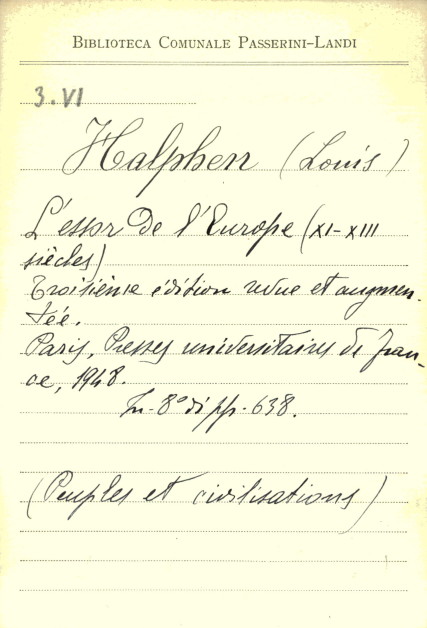 BIBLIOTECA COMUNALE PASSERINI-LANDI
3. VI
Halphen (Louis)
L'essor de l'Europe (XI-XIII
siècles)
Troisième édition revue et augmen-
tée.
Paris, Presses universitaires de Fran-
ce, 1948.
In-8° di pp. 638.
(Peuples et civilisations)